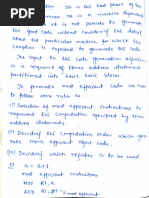 - It is the last phase of the
It is a machine dependent
It is not possible to generate
the good code without considering the details
about the particular machine for which the
compiler is expected to generate the code.
The input to the code generation algorithm
is a sequence of three address statement
partitioned into basic blocks.
To generate most efficient code we have
to follow some rule as :
(i) Selection of most efficient instructions to
represent the computation specified by three
address statement
(ii) Deciding the computation order which gene-
rate more efficient object code.
(iii) Deciding which register is to be used
a = a+1
most efficient instruction
MOV R1, A
most efficient